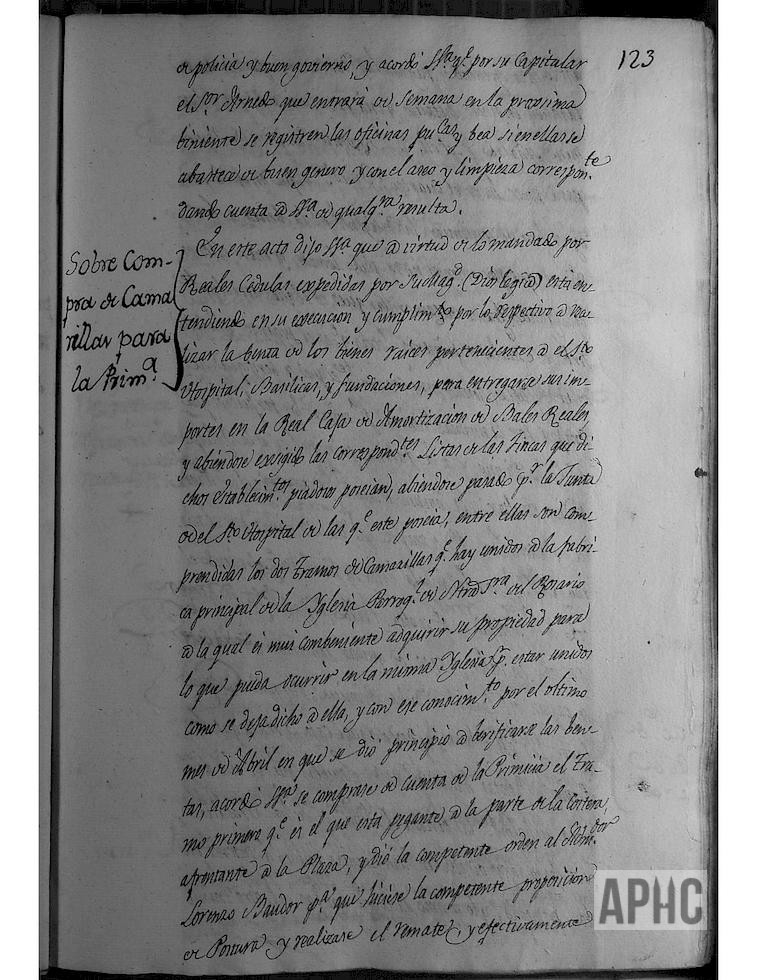 123
de policia y buen govierno, y acordó Sªª. qᵉ. por su Capitular
el Sᵒʳ Arnedo que entrará de Semana en la proxsima
biniente se registren las oficinas pu.ᶜᵃˢ y bea si en ellas se
abastece de buen genero y con el aseo y limpieza correspon.ᵗᵉ
dando cuenta a Sªª. de qualq.ʳᵃ resulta.
Sobre Com-
pra de Cama
rillas para
la Prim.ᵃ
En este acto dijo Sªª. que a virtud de lo mandado por
Reales Cedulas expedidas por Su Mag.ᵈ (Dios le gᵉ) esta en-
tendiendo en su execucion y cumplim.ᵗᵒ por lo respectivo a rea-
lizar la benta de los bienes raices pertenecientes a el Sᵗᵒ
Hospital, Basilicas, y fundaciones, para entregarse sus im-
portes en la Real Caja de Amortización de Bales Reales,
y abiendose exsigido las correspond.ᵗᵉˢ Listas de las Fincas que di-
chos establecim.ᵗᵒˢ piadosos poseian, abiendose pasado p.ʳ la Junta
de el Sᵗᵒ Hospital de las q.ᵉ este poseia, entre ellas son com-
prendidas los dos Tramos de Camarillas q.ᵉ hay unidos a la fabri-
ca principal de la Yglesia Parroq.ˡ de Ntra Sra del Rosario
a la qual es mui combeniente adquirir su propiedad para
lo que pueda ocurrir en la misma Yglesia p.ʳ estar unidos
como se deja dicho a ella, y con ese conocim.ᵗᵒ por el ultimo
mes de Abril en que se dió principio a berificarse las ben-
tas, acordó Sªª. se comprase de cuenta de la Primicia el Tra-
mo primero q.ᵉ es el que esta pegante a la parte de la Costera,
afrontante a la Plaza, y dió la competente orden al Adm.ᵈᵒʳ
Lorenzo Baudor p.ᵃ que hiciese la competente proposición
de Postura y realizase el remate, y efectivamente
APHC